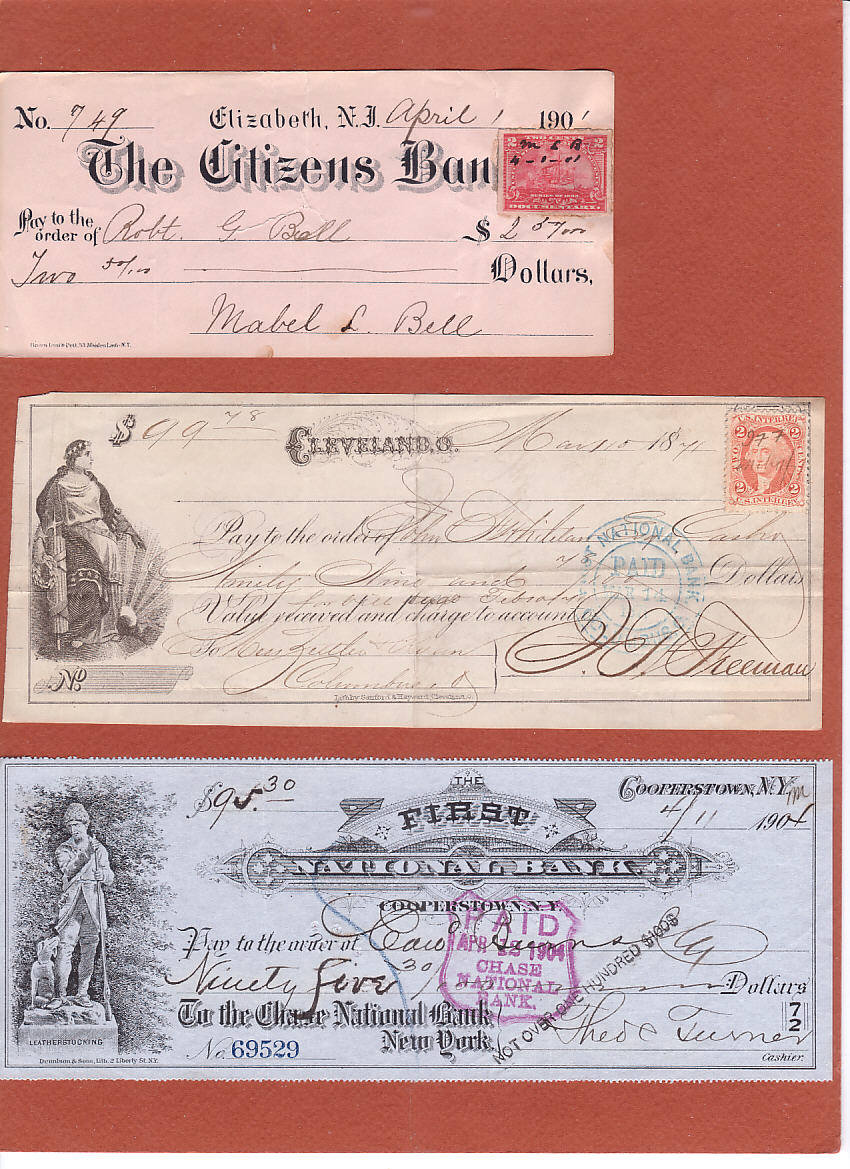 No. 749 Elizabeth, N.J. April 1 1901
The Citizens Ban
TWO CENTS
2 2
M L B
4-1-01
SERIES OF 1898
DOCUMENTARY
Pay to the
order of Robt. G Bell $ 2 50/100
Two 50/100 Dollars,
Mabel L. Bell
$ 99 78
CLEVELAND, O. Mar 10 1871
U.S. INTER. REV.
2 2
TWO CENTS
2 2
U.S. INTER. REV.
Pay to the order of John Cash
Ninety Nine and 78/100 Dollars
Value received and charge to account of
NATIONAL BANK
PAID
14
To
Columbus O
Freeman
No
Lith. by Sanford & Hayward, Cleveland, O.
$95.30
COOPERSTOWN, N.Y.
4/11 1904
THE
FIRST
NATIONAL BANK
COOPERSTOWN, N.Y.
Pay to the order of
Ninety five 30/100 Dollars
PAID
APR 1904
CHASE
NATIONAL
BANK.
NOT OVER ONE HUNDRED $100$
To the Chase National Bank
New York
72
Theo C Turner
Cashier.
No. 69529
LEATHERSTOCKING
Dennison & Sons, Lith. 2 Liberty St. N.Y.